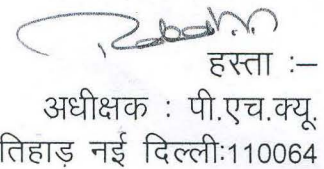 हस्ता :–
अधीक्षक : पी.एच.क्यू.
तिहाड़ नई दिल्ली:110064